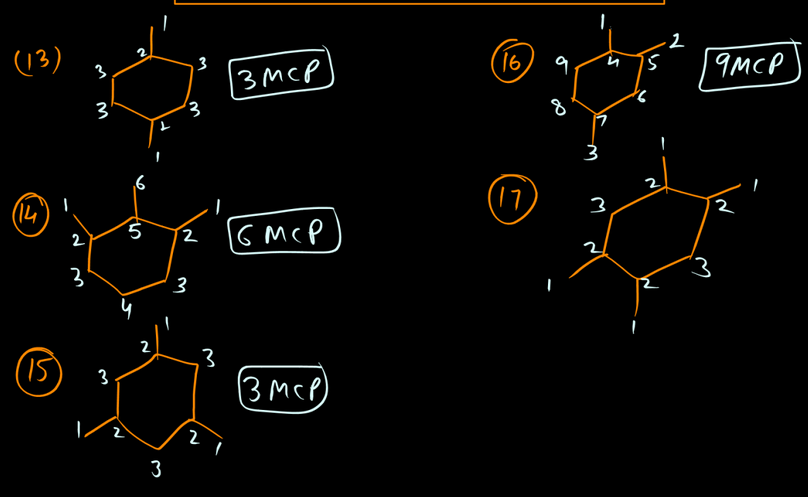 (13)
1
2
3
3
3
3
2
1
3 MCP
14
6
1
1
2
5
2
3
3
4
6 MCP
15
1
2
3
3
1
2
2
1
3
3 MCP
16
1
2
9
4
5
8
6
7
3
9 MCP
17
1
1
2
2
3
2
3
1
2
1